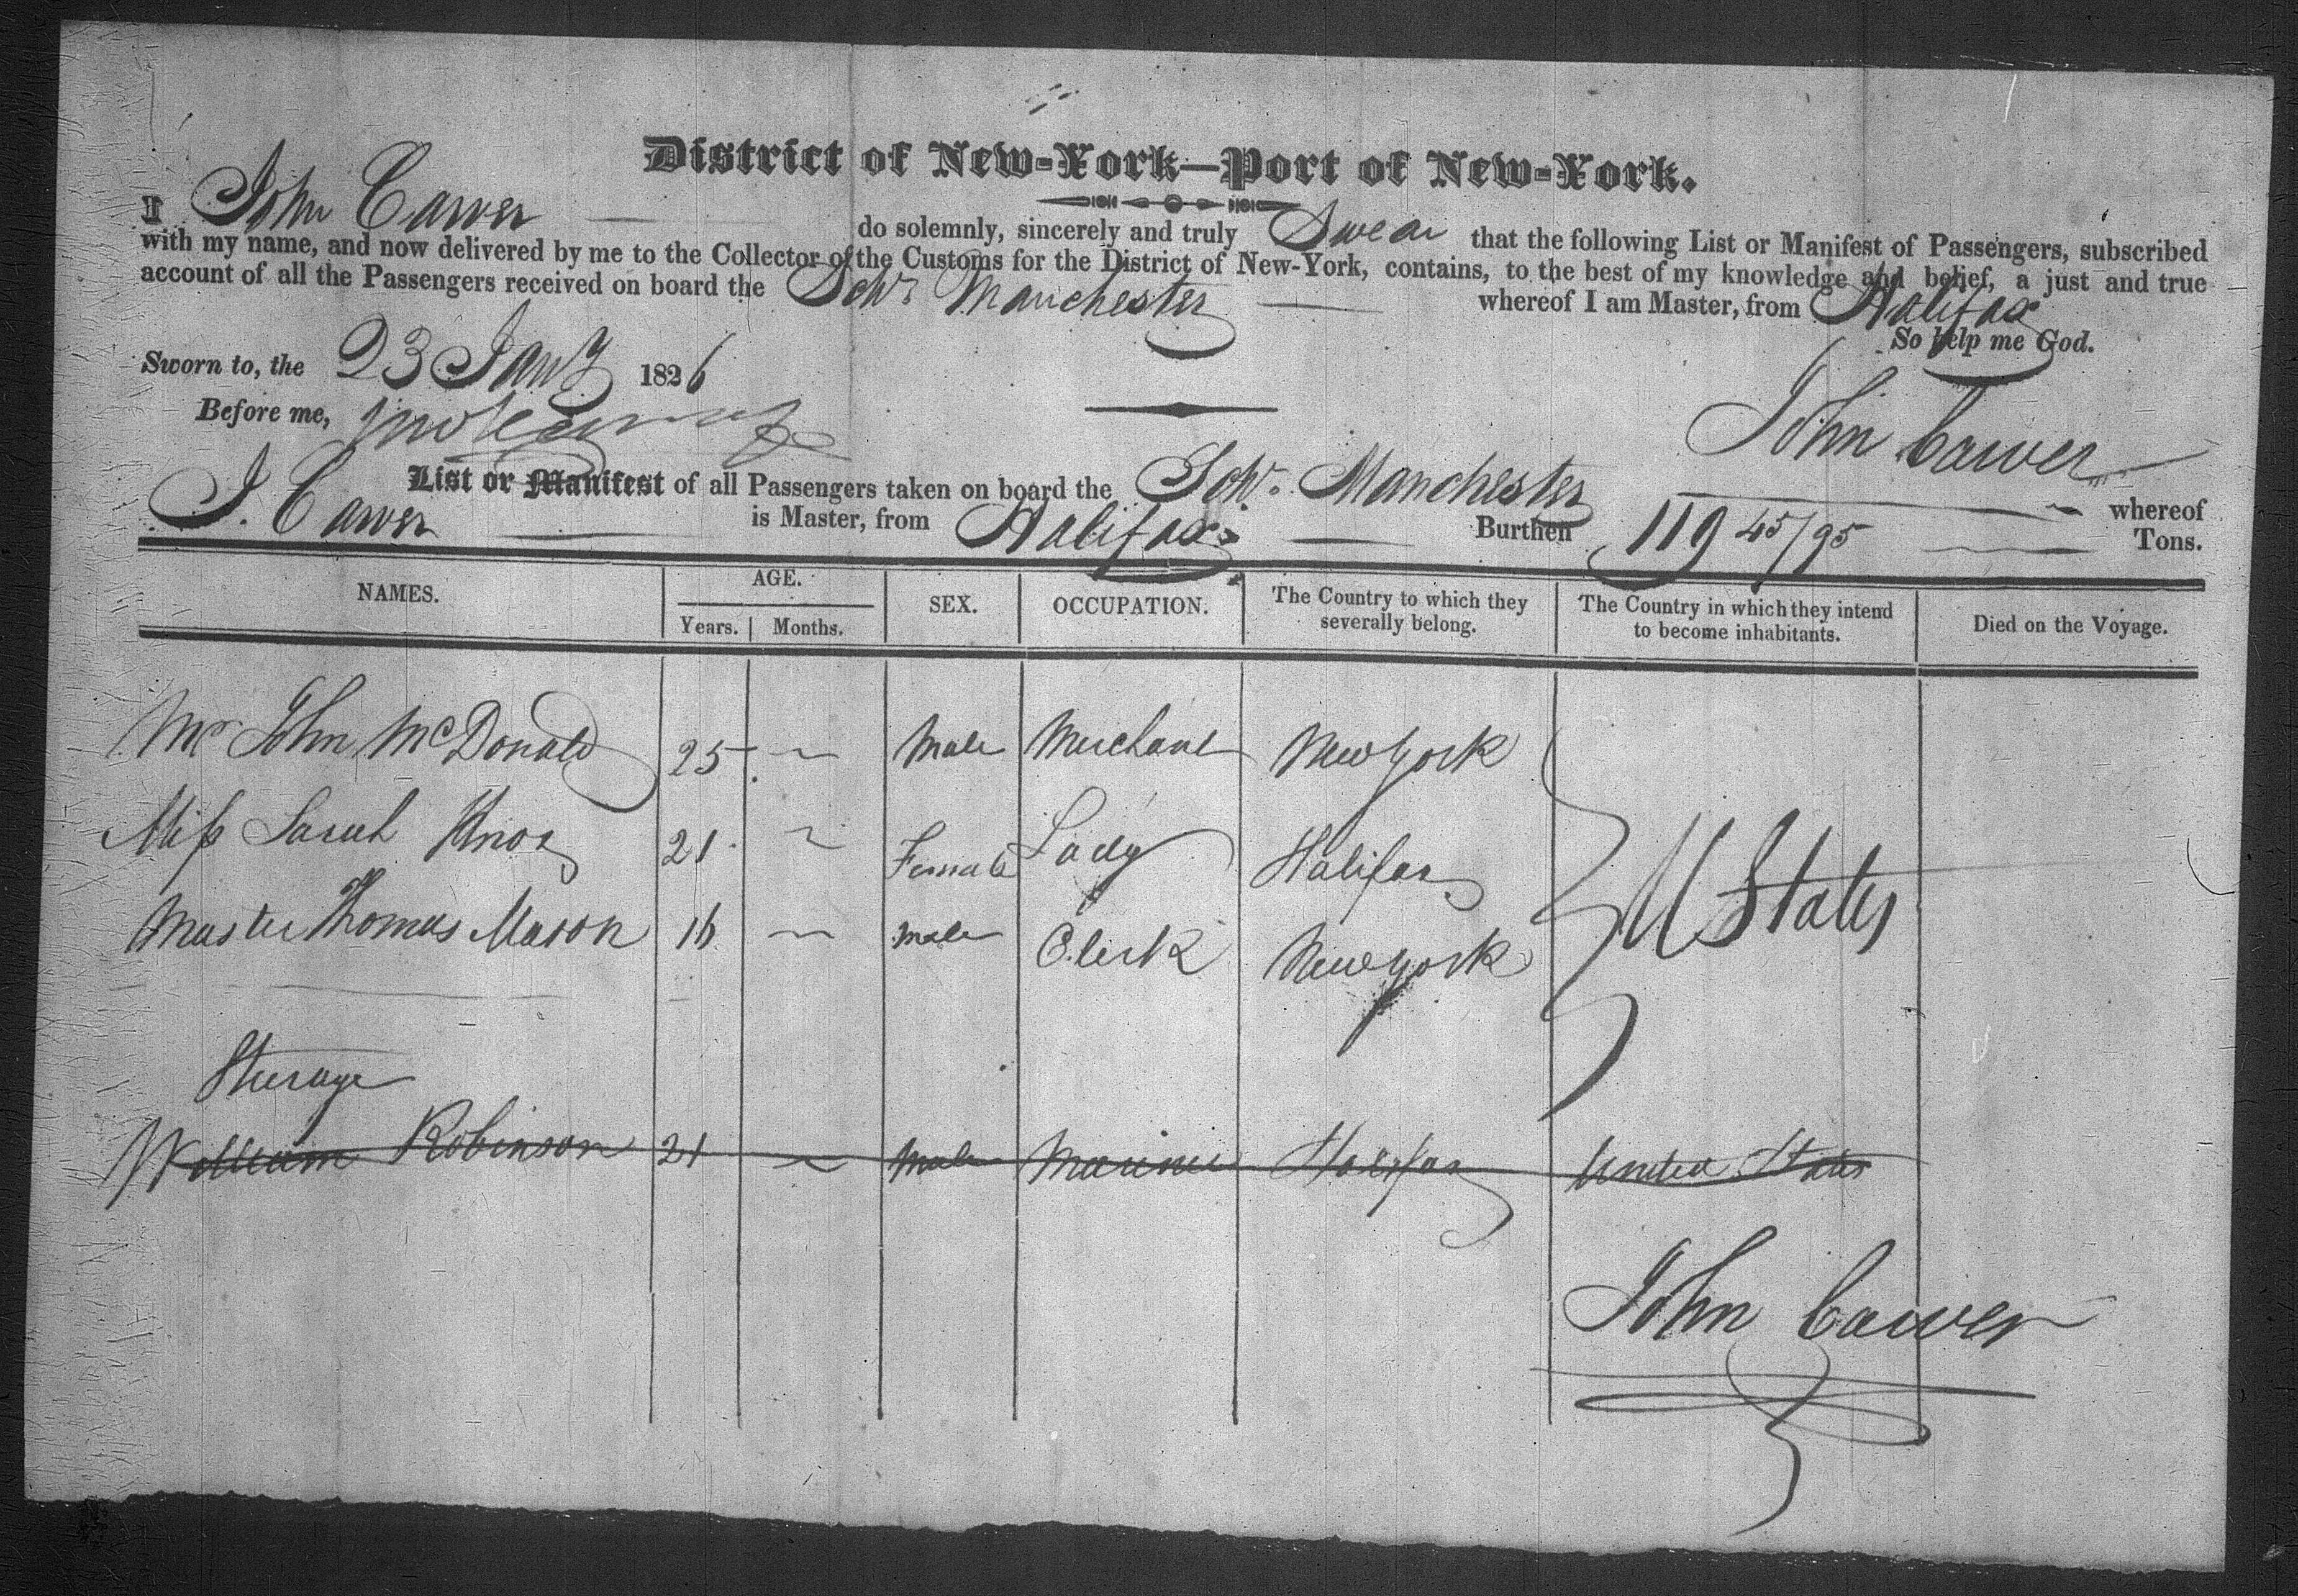 District of New-York—Port of New-York.
I John Carver do solemnly, sincerely and truly Swear that the following List or Manifest of Passengers, subscribed
with my name, and now delivered by me to the Collector of the Customs for the District of New-York, contains, to the best of my knowledge and belief, a just and true
account of all the Passengers received on board the Schr Manchester whereof I am Master, from Halifax
So help me God.
Sworn to, the 23 Jany 1826
Before me,
John Carver
List or Manifest of all Passengers taken on board the Schr. Manchester whereof
J. Carver is Master, from Halifax Burthen 119 45/95 Tons.
NAMES. AGE. SEX. OCCUPATION. The Country to which they severally belong. The Country in which they intend to become inhabitants. Died on the Voyage.
Years. Months.
Mr John McDonald 25 Male Merchant New York
Miss Sarah Knox 21 Female Lady Halifax U States
Master Thomas Mason 16 Male Clerk New York
Steerage
William Robinson 21 Male Mariner Halifax United States
John Carver